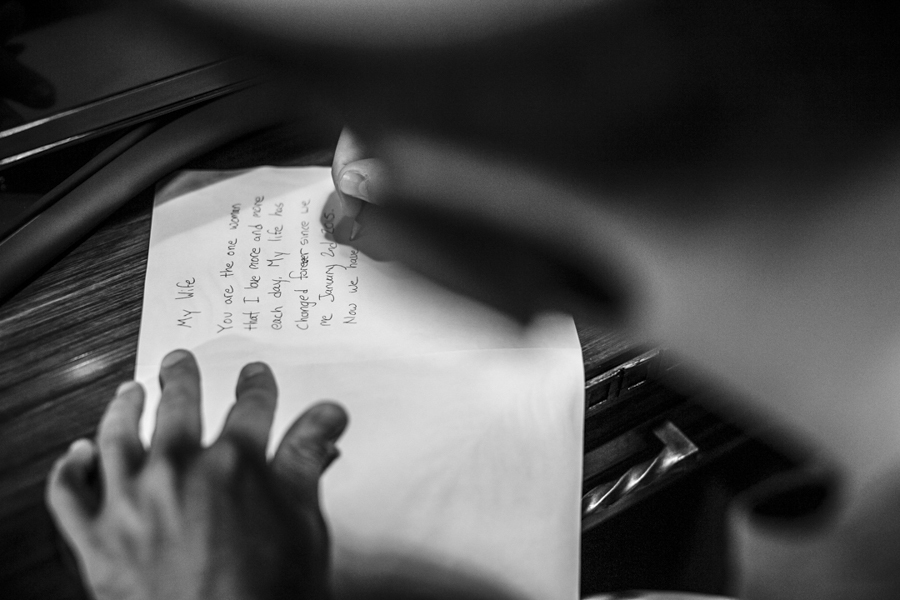 My Wife
You are the one woman
that I love more and more
each day. My life has
changed forever since we
me January 2nd
Now we have